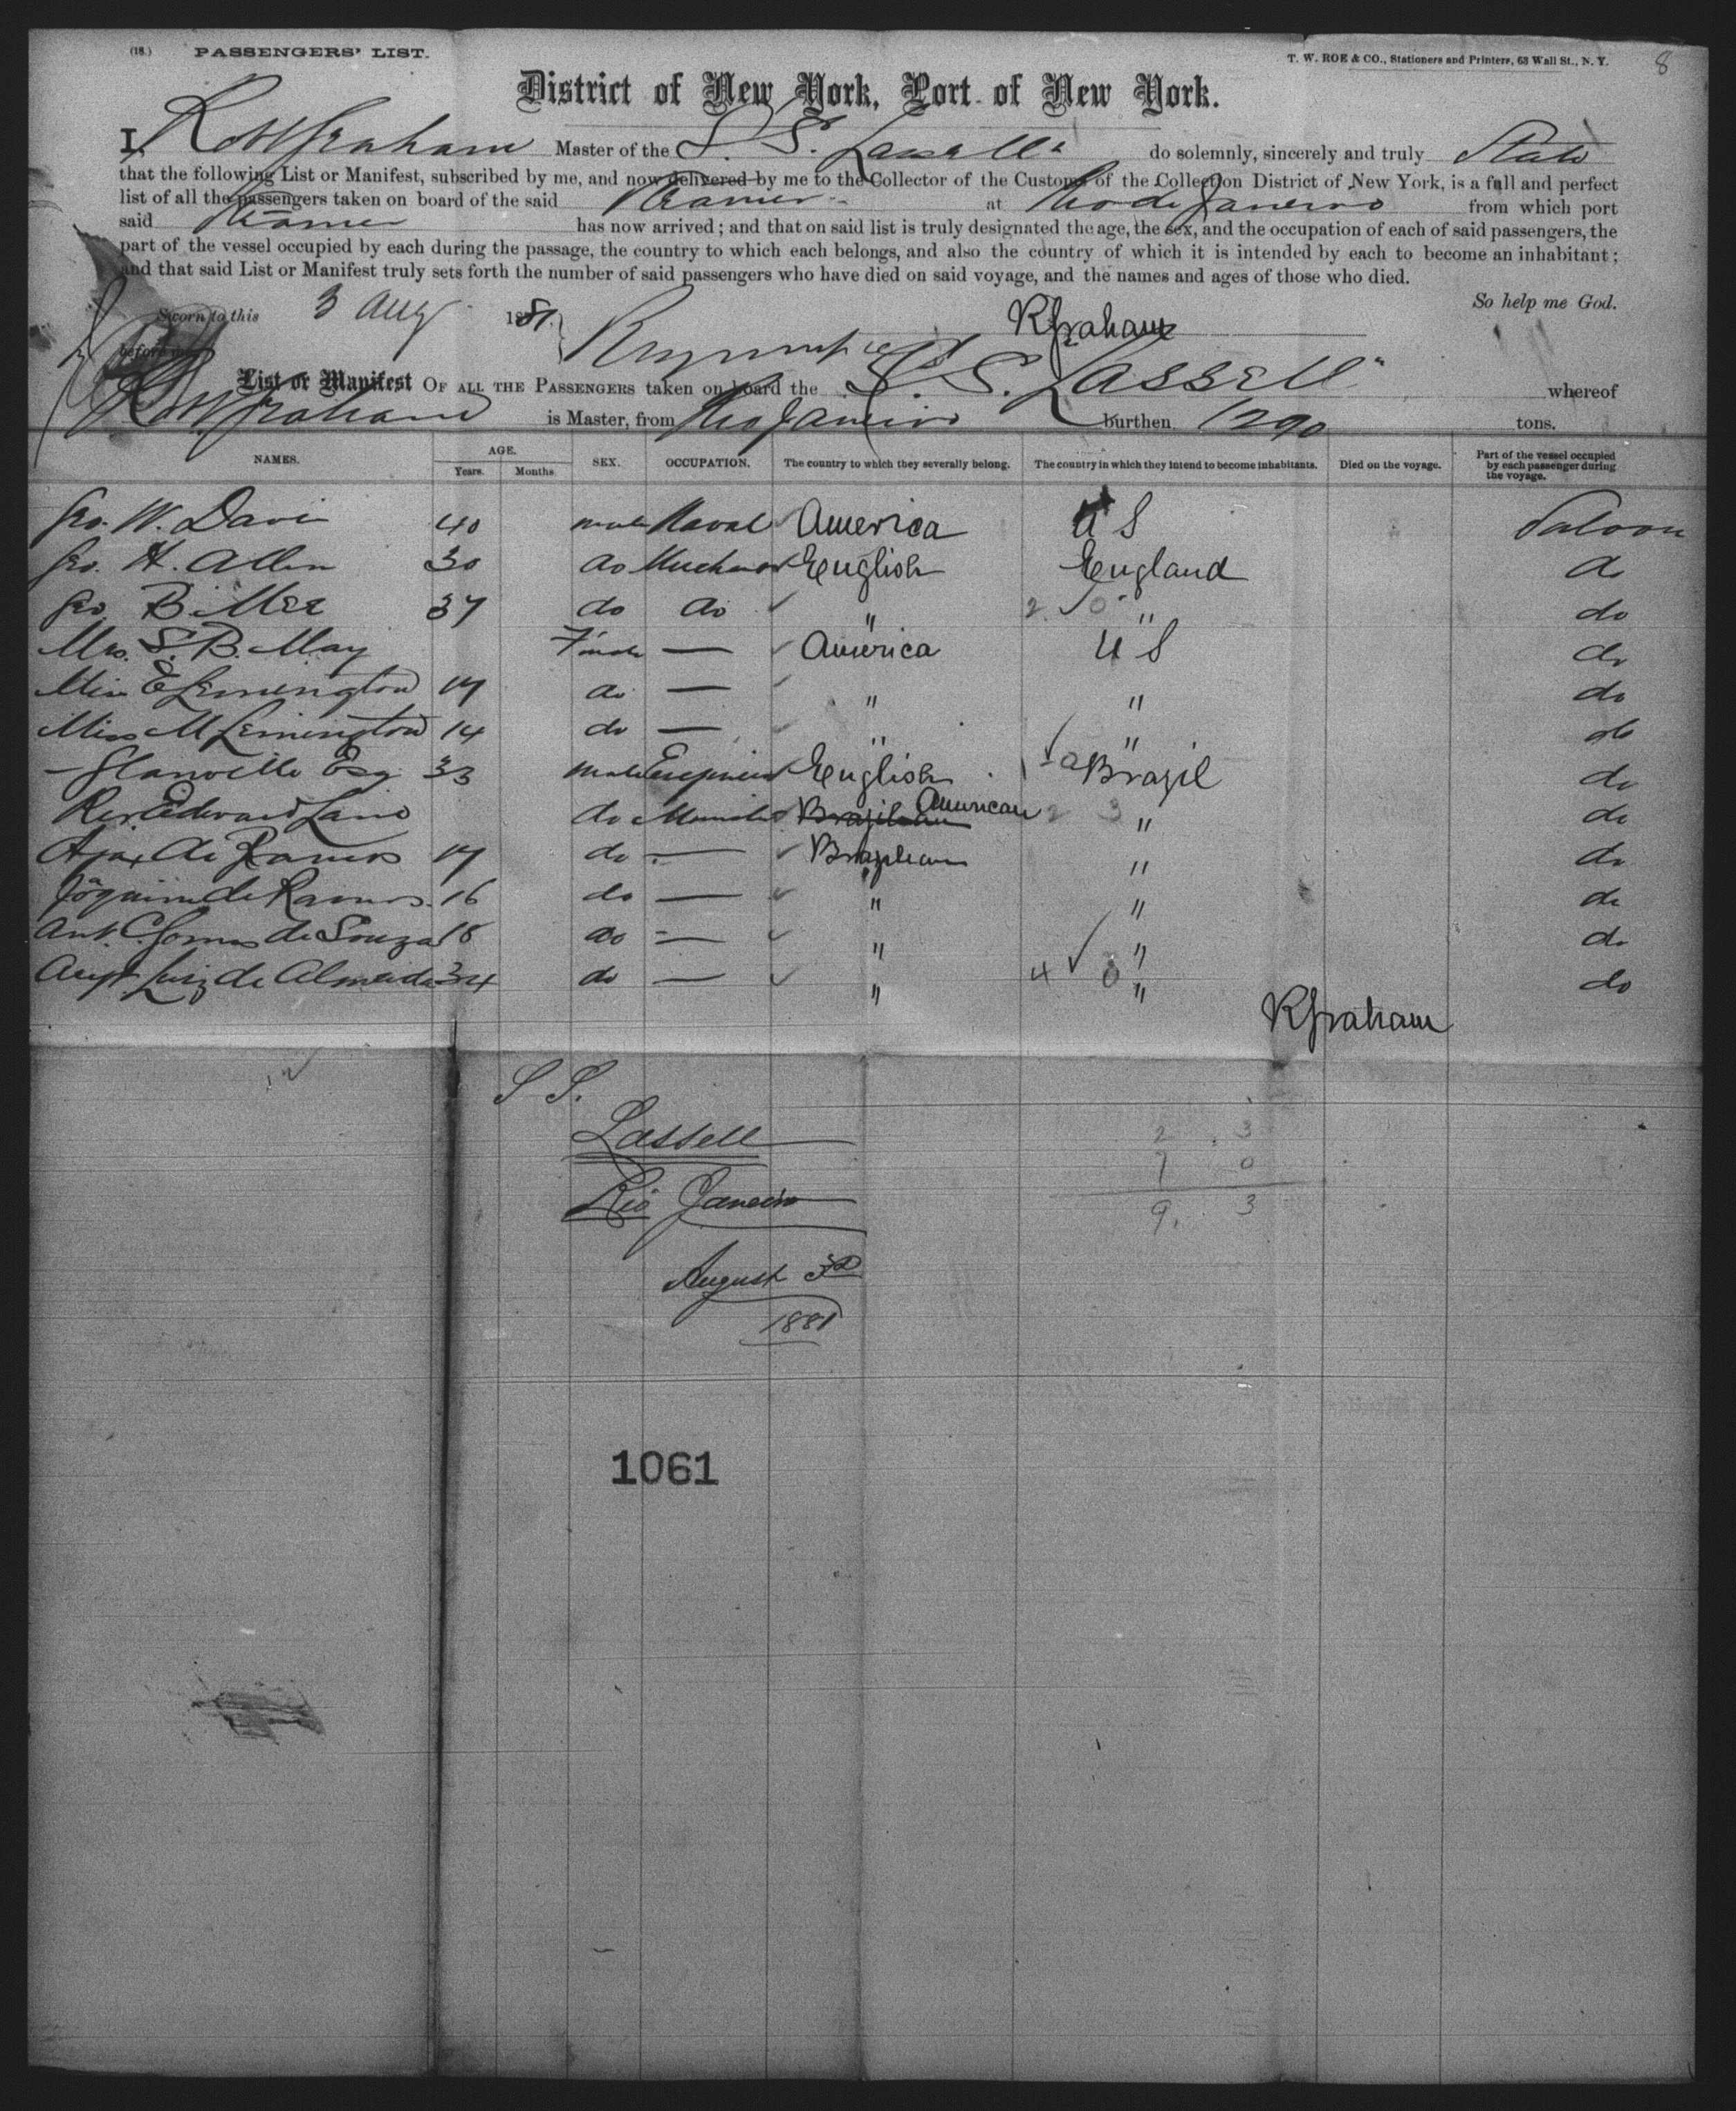 (18.) PASSENGERS' LIST.
T. W. ROE & CO., Stationers and Printers, 63 Wall St., N. Y. 8
District of New York, Port of New York.
I, Robt Graham Master of the S. S. Lassell" do solemnly, sincerely and truly State
that the following List or Manifest, subscribed by me, and now delivered by me to the Collector of the Customs of the Collection District of New York, is a full and perfect
list of all the passengers taken on board of the said Steamer at Rio de Janeiro from which port
said Steamer has now arrived; and that on said list is truly designated the age, the sex, and the occupation of each of said passengers, the
part of the vessel occupied by each during the passage, the country to which each belongs, and also the country of which it is intended by each to become an inhabitant;
and that said List or Manifest truly sets forth the number of said passengers who have died on said voyage, and the names and ages of those who died.
So help me God.
Sworn to this 3 Aug 1881.
RGraham
before me
List or Manifest OF ALL THE PASSENGERS taken on board the S. S. LASSELL" whereof
Robt Graham is Master, from Rio Janeiro burthen 1290 tons.
NAMES. AGE. Years. Months. SEX. OCCUPATION. The country to which they severally belong. The country in which they intend to become inhabitants. Died on the voyage. Part of the vessel occupied by each passenger during the voyage.
Geo. W. Davis 40 male Naval America U S Saloon
Geo. H. Allen 30 do Merchant English England do
Geo. B. 37 do do " 2 0 " do
Mrs. S. B. May Female — America U S do
Miss E Lemington 17 do — " " do
Miss M Lemington 14 do — " " do
— Glanville Esq 33 male Engineer English 1 0 Brazil do
Rev Edward Lane do Minister Brazilian American 2 3 " do
Ajax de Ramos 17 do — Brazilian " do
Joaquim de Ramos 16 do — " " do
Ant. C. Gomes de Souza 18 do — " " do
Augt Luiz de Almeida 34 do — " 4 0 " do
RGraham
12
S S.
Lassell
Rio Janeiro
August 3rd
1881
2 3
7 0
9. 3
1061